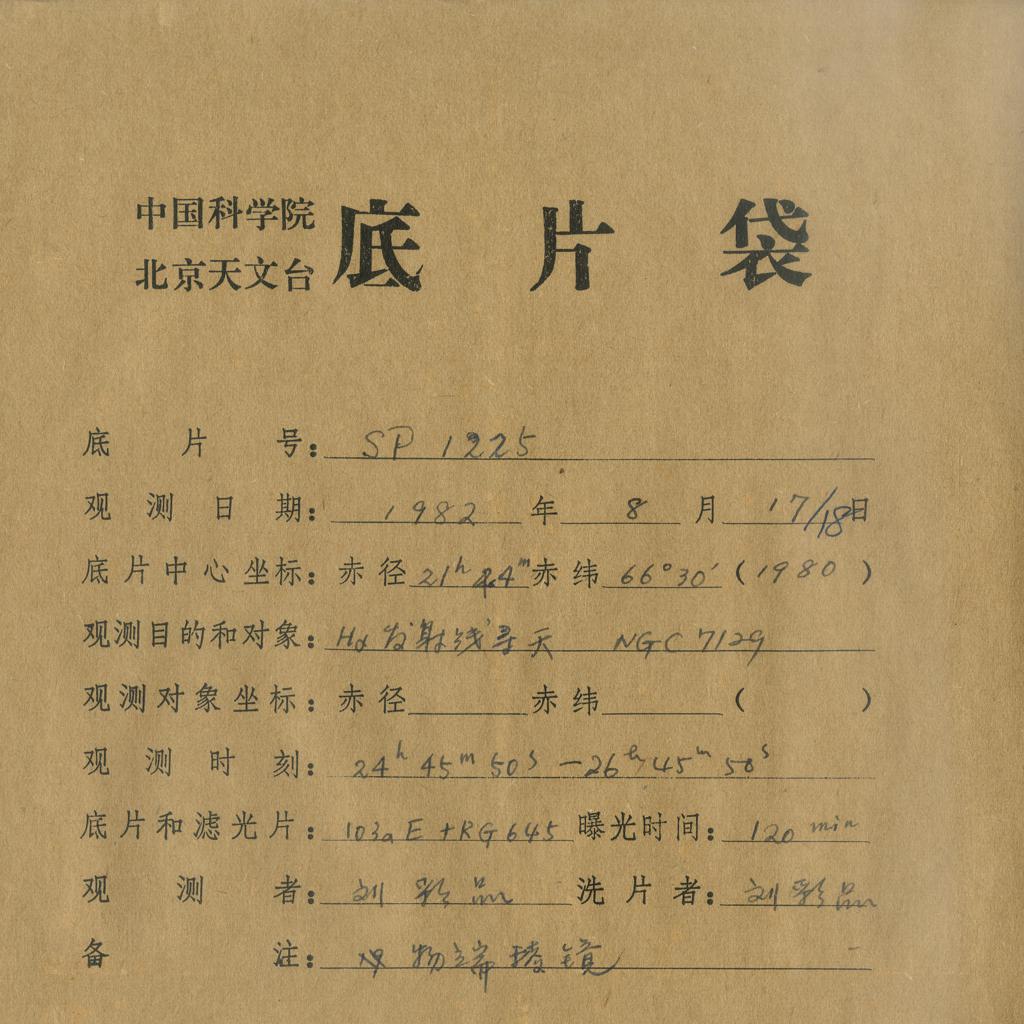 中国科学院
北京天文台
底片袋
底片号：SP 1225
观测日期：1982年8月17/18日
底片中心坐标：赤径21h 44m赤纬66°30′（1980）
观测目的和对象：Hα发射线寻天 NGC 7129
观测对象坐标：赤径 赤纬 （ ）
观测时刻：24h 45m 50s — 26h 45m 50s
底片和滤光片：103aE+RG645 曝光时间：120 min
观测者：刘彩品 洗片者：刘彩品
备注：物端棱镜